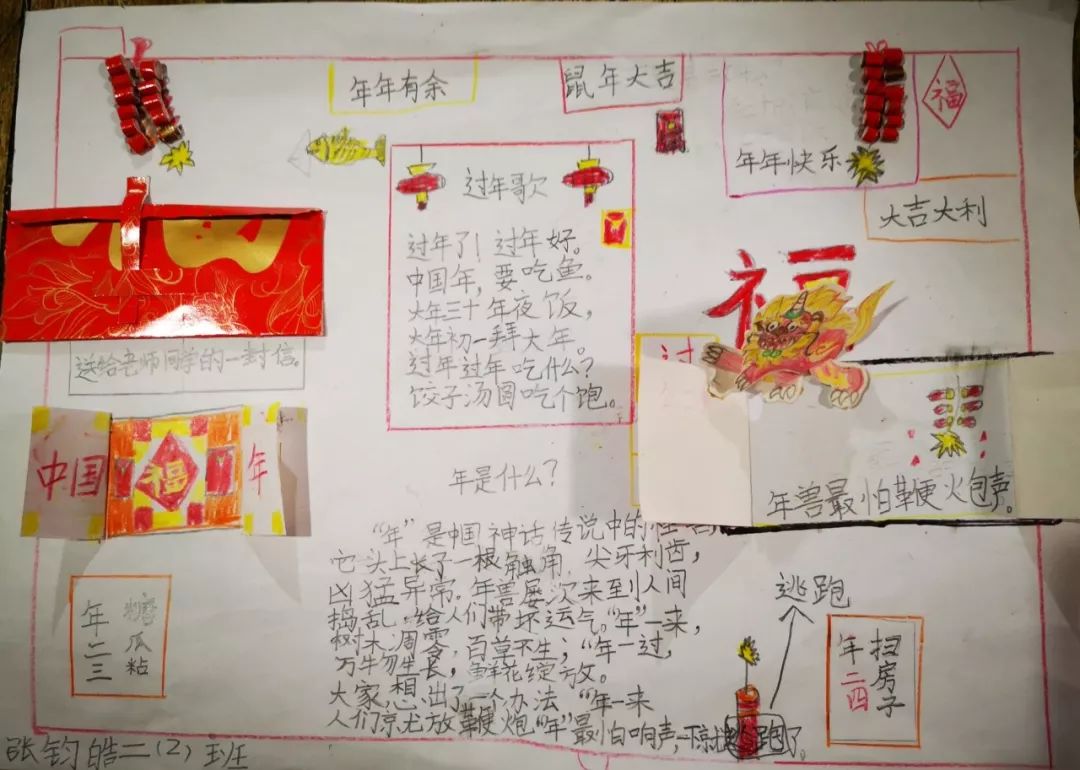 年年有余
鼠年大吉
福
年年快乐
大吉大利
过年歌
过年了！过年好。
中国年，要吃鱼。
大年三十年夜饭，
大年初一拜大年。
过年过年吃什么？
饺子汤圆吃个饱。
福
过
送给老师同学的一封信。
中国
福
年
年兽最怕鞭火包声。
年是什么？
“年”是中国神话传说中的
它头上长了一根触角，尖牙利齿，
凶猛异常。年兽屡次来到人间
捣乱，给人们带坏运气。“年”一来，
树木凋零，百草不生；“年一过，
万牛勿生长，鲜花绽放。
大家想出了一个办法 “年一来
人们京尤放鞭炮“年”最怕响声，一 跑了。
逃跑
年二三
糖瓜粘
扫房子
年二四
张钧皓二（2）班